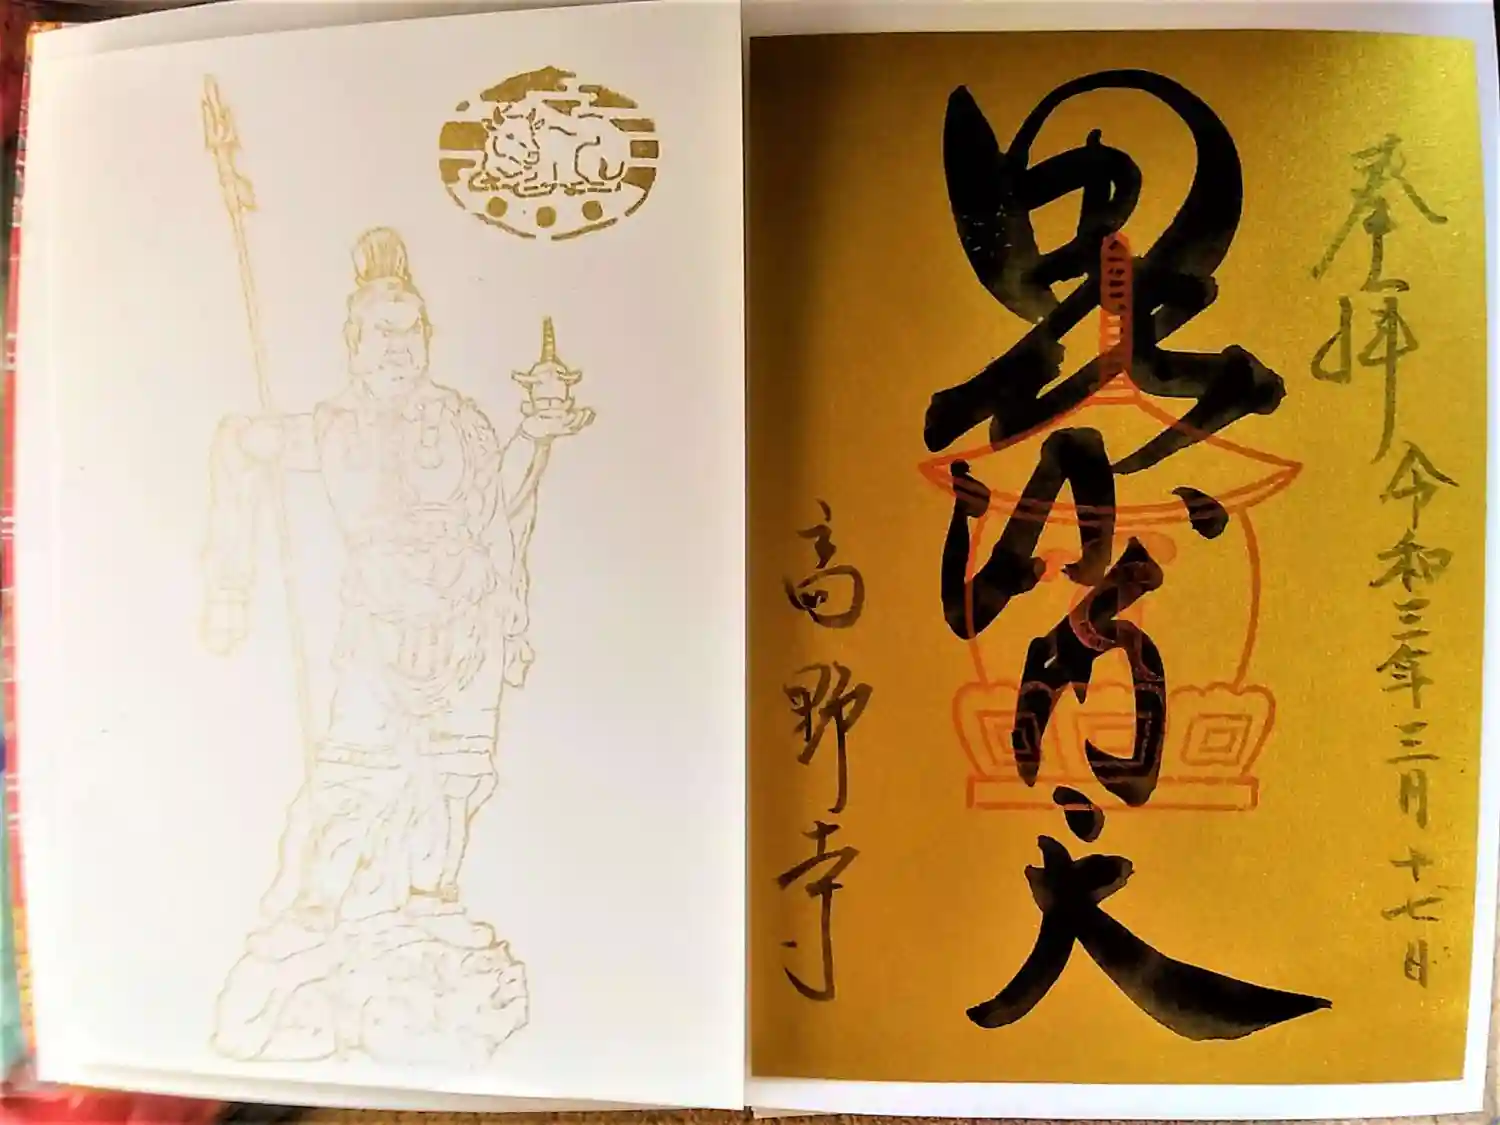 奉拝
令和三年三月十七日
毘沙門天
高野寺